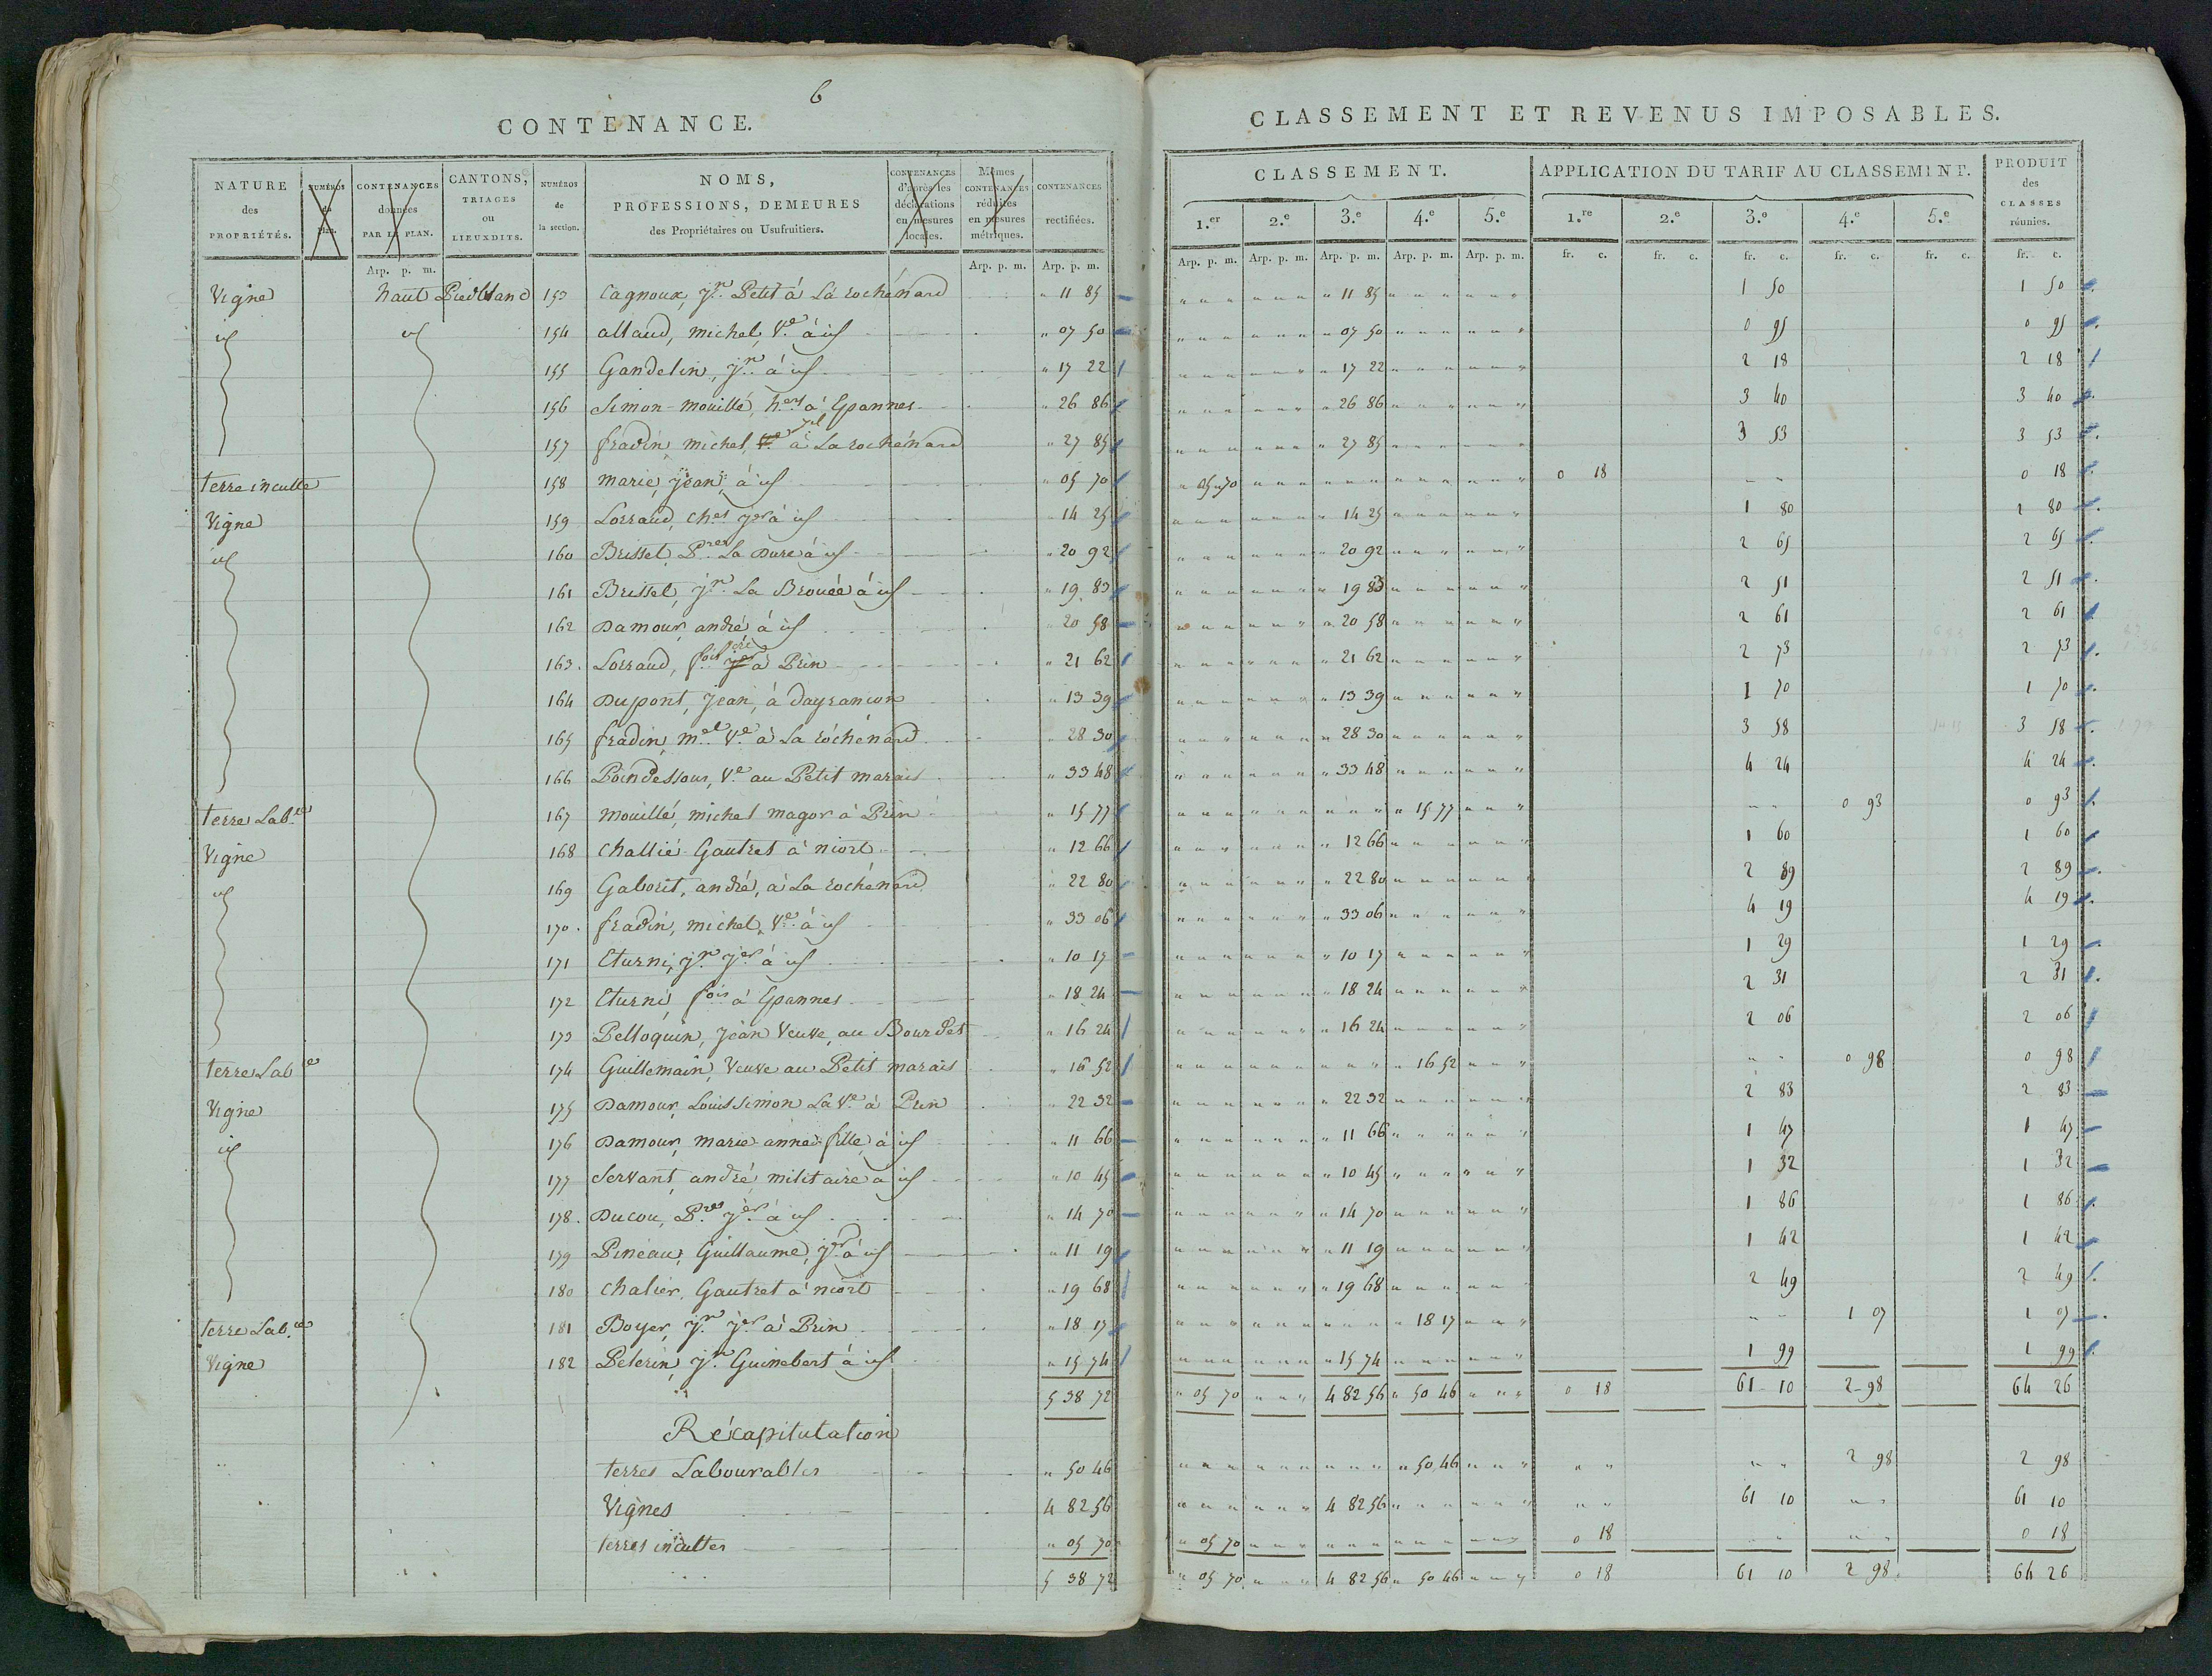 6
CONTENANCE.
NATURE des PROPRIÉTÉS. NUMÉROS du Plan. CONTENANCES données PAR LE PLAN. CANTONS, TRIAGES ou LIEUXDITS. NUMÉROS de la section. NOMS, PROFESSIONS, DEMEURES des Propriétaires ou Usufruitiers. CONTENANCES d'après les déclarations en mesures locales. Mêmes CONTENANCES réduites en mesures métriques. CONTENANCES rectifiées.
Arp. p. m. Arp. p. m. Arp. p. m.
Vigne haut Piedblanc 153 Cagnoux, jn. Petit à La rochénard " 11 85
id id 154 allaud, michel, Ve. à id " 07 50
155 Gandelin, jn. à id " 17 22
156 Simon-mouillé, hers. à Epannes " 26 86
157 fradin, michel, à La rochénard " 27 85
terre inculte 158 marie, jean, à id " 05 70
Vigne 159 Lorraud, ches. jer à id " 14 25
id 160 Brisset, Pre. La Dure à id " 20 92
161 Brisset, jn. La Brouée à id " 19 83
162 Damour, andré à id " 20 58
163. Lorraud, fois père à Prin " 21 62
164 Dupont, jean, à dayrançon " 13 39
165 fradin, mel. Ve. à La rochénard " 28 30
166 Poindessour, Ve. au Petit marais " 33 48
terre Lab.le 167 mouillé, michel magor à Prin " 15 77
Vigne 168 challié Gautret à niort " 12 66
id 169 Gaborit, andré, à La rochénard " 22 80
170. fradin, michel, Ve. à id " 33 06
171 Eturni, jn. jer à id " 10 17
172 Eturni, fois à Epannes " 18 24
173 Pelloquin, jean Veuve, au Bourdet " 16 24
terre Lab.le 174 Guillemain, Veuve au Petit marais " 16 52
Vigne 175 Damour, Louis simon La Ve. à Prin " 22 32
id 176 Damour, marie anne fille, à id " 11 66
177 Servant, andré, militaire à id " 10 45
178. Ducou, Pre. jer à id " 14 70
179 Pineau, Guillaume, jer à id " 11 19
180 chalier, Gautret à niort " 19 68
terre Lab.le 181 Boyer, jn. jer à Prin " 18 17
Vigne 182 Pelerin, jn. Guinebert à id " 15 74
5 38 72
Récapitulation
terres Labourables " 50 46
Vignes 4 82 56
terres incultes " 05 70
5 38 72
CLASSEMENT ET REVENUS IMPOSABLES.
CLASSEMENT. APPLICATION DU TARIF AU CLASSEMENT. PRODUIT des CLASSES réunies.
1.er 2.e 3.e 4.e 5.e 1.re 2.e 3.e 4.e 5.e
Arp. p. m. Arp. p. m. Arp. p. m. Arp. p. m. Arp. p. m. fr. c. fr. c. fr. c. fr. c. fr. c. fr. c.
" 11 85 1 50 1 50
" 07 50 0 95 0 95
" 17 22 2 18 2 18
" 26 86 3 40 3 40
" 27 85 3 53 3 53
" 05 70 0 18 0 18
" 14 25 1 80 1 80
" 20 92 2 65 2 65
" 19 83 2 51 2 51
" 20 58 2 61 2 61
" 21 62 2 73 2 73
" 13 39 1 70 1 70
" 28 30 3 58 3 58
" 33 48 4 24 4 24
" 15 77 0 93 0 93
" 12 66 1 60 1 60
" 22 80 2 89 2 89
" 33 06 4 19 4 19
" 10 17 1 29 1 29
" 18 24 2 31 2 31
" 16 24 2 06 2 06
" 16 52 0 98 0 98
" 22 32 2 83 2 83
" 11 66 1 47 1 47
" 10 45 1 32 1 32
" 14 70 1 86 1 86
" 11 19 1 42 1 42
" 19 68 2 49 2 49
" 18 17 1 07 1 07
" 15 74 1 99 1 99
" 05 70 " " " 4 82 56 " 50 46 " " " 0 18 61 10 2 98 64 26
" 50 46 2 98 2 98
4 82 56 61 10 61 10
" 05 70 0 18 0 18
" 05 70 " " " 4 82 56 " 50 46 " " " 0 18 61 10 2 98 64 26